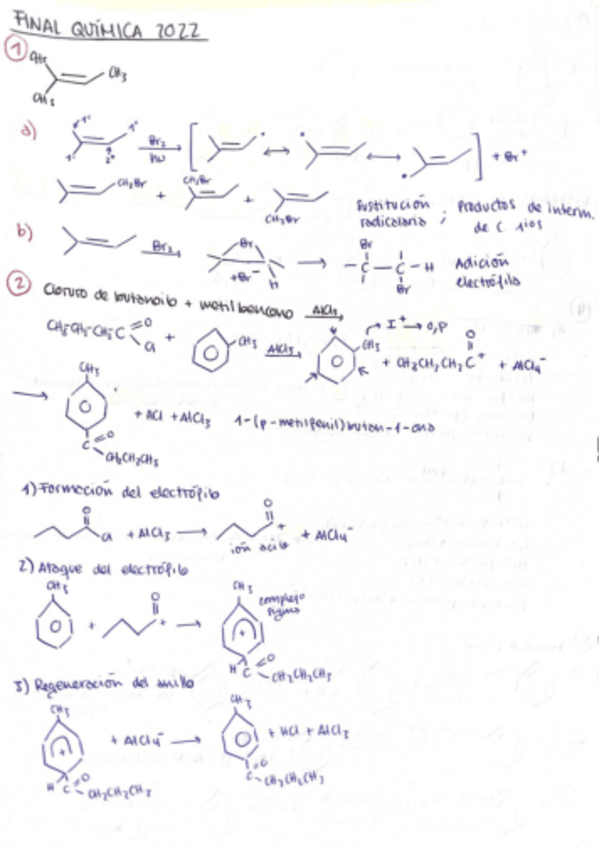 FINAL QUÍMICA 2022
1
CH3 CH3
CH3
a) 1º 1º 1º 2º Br2 hν + Br+
CH2Br + CH2Br + CH2Br
Sustitución radicalaria ; Productos de interm. de C. 1ios
b) Br2 Br + Br- H Br C - C - H Br Adición electrófila
2 Cloruro de butanoilo + metilbenceno AlCl3
CH3CH2CH2C O Cl + CH3 AlCl3 CH3 I+ → o,p + CH3CH2CH2C+ O + AlCl4-
CH3 C O CH2CH2CH3 + HCl + AlCl3 1-(p-metilfenil)butan-1-ona
1) Formación del electrófilo
O Cl + AlCl3 → O + ión acilo + AlCl4-
2) Ataque del electrófilo
CH3 + O + → CH3 complejo sigma + H C O CH2CH2CH3
3) Regeneración del anillo
CH3 + H C O CH2CH2CH3 + AlCl4- → CH3 C O CH2CH2CH3 + HCl + AlCl3